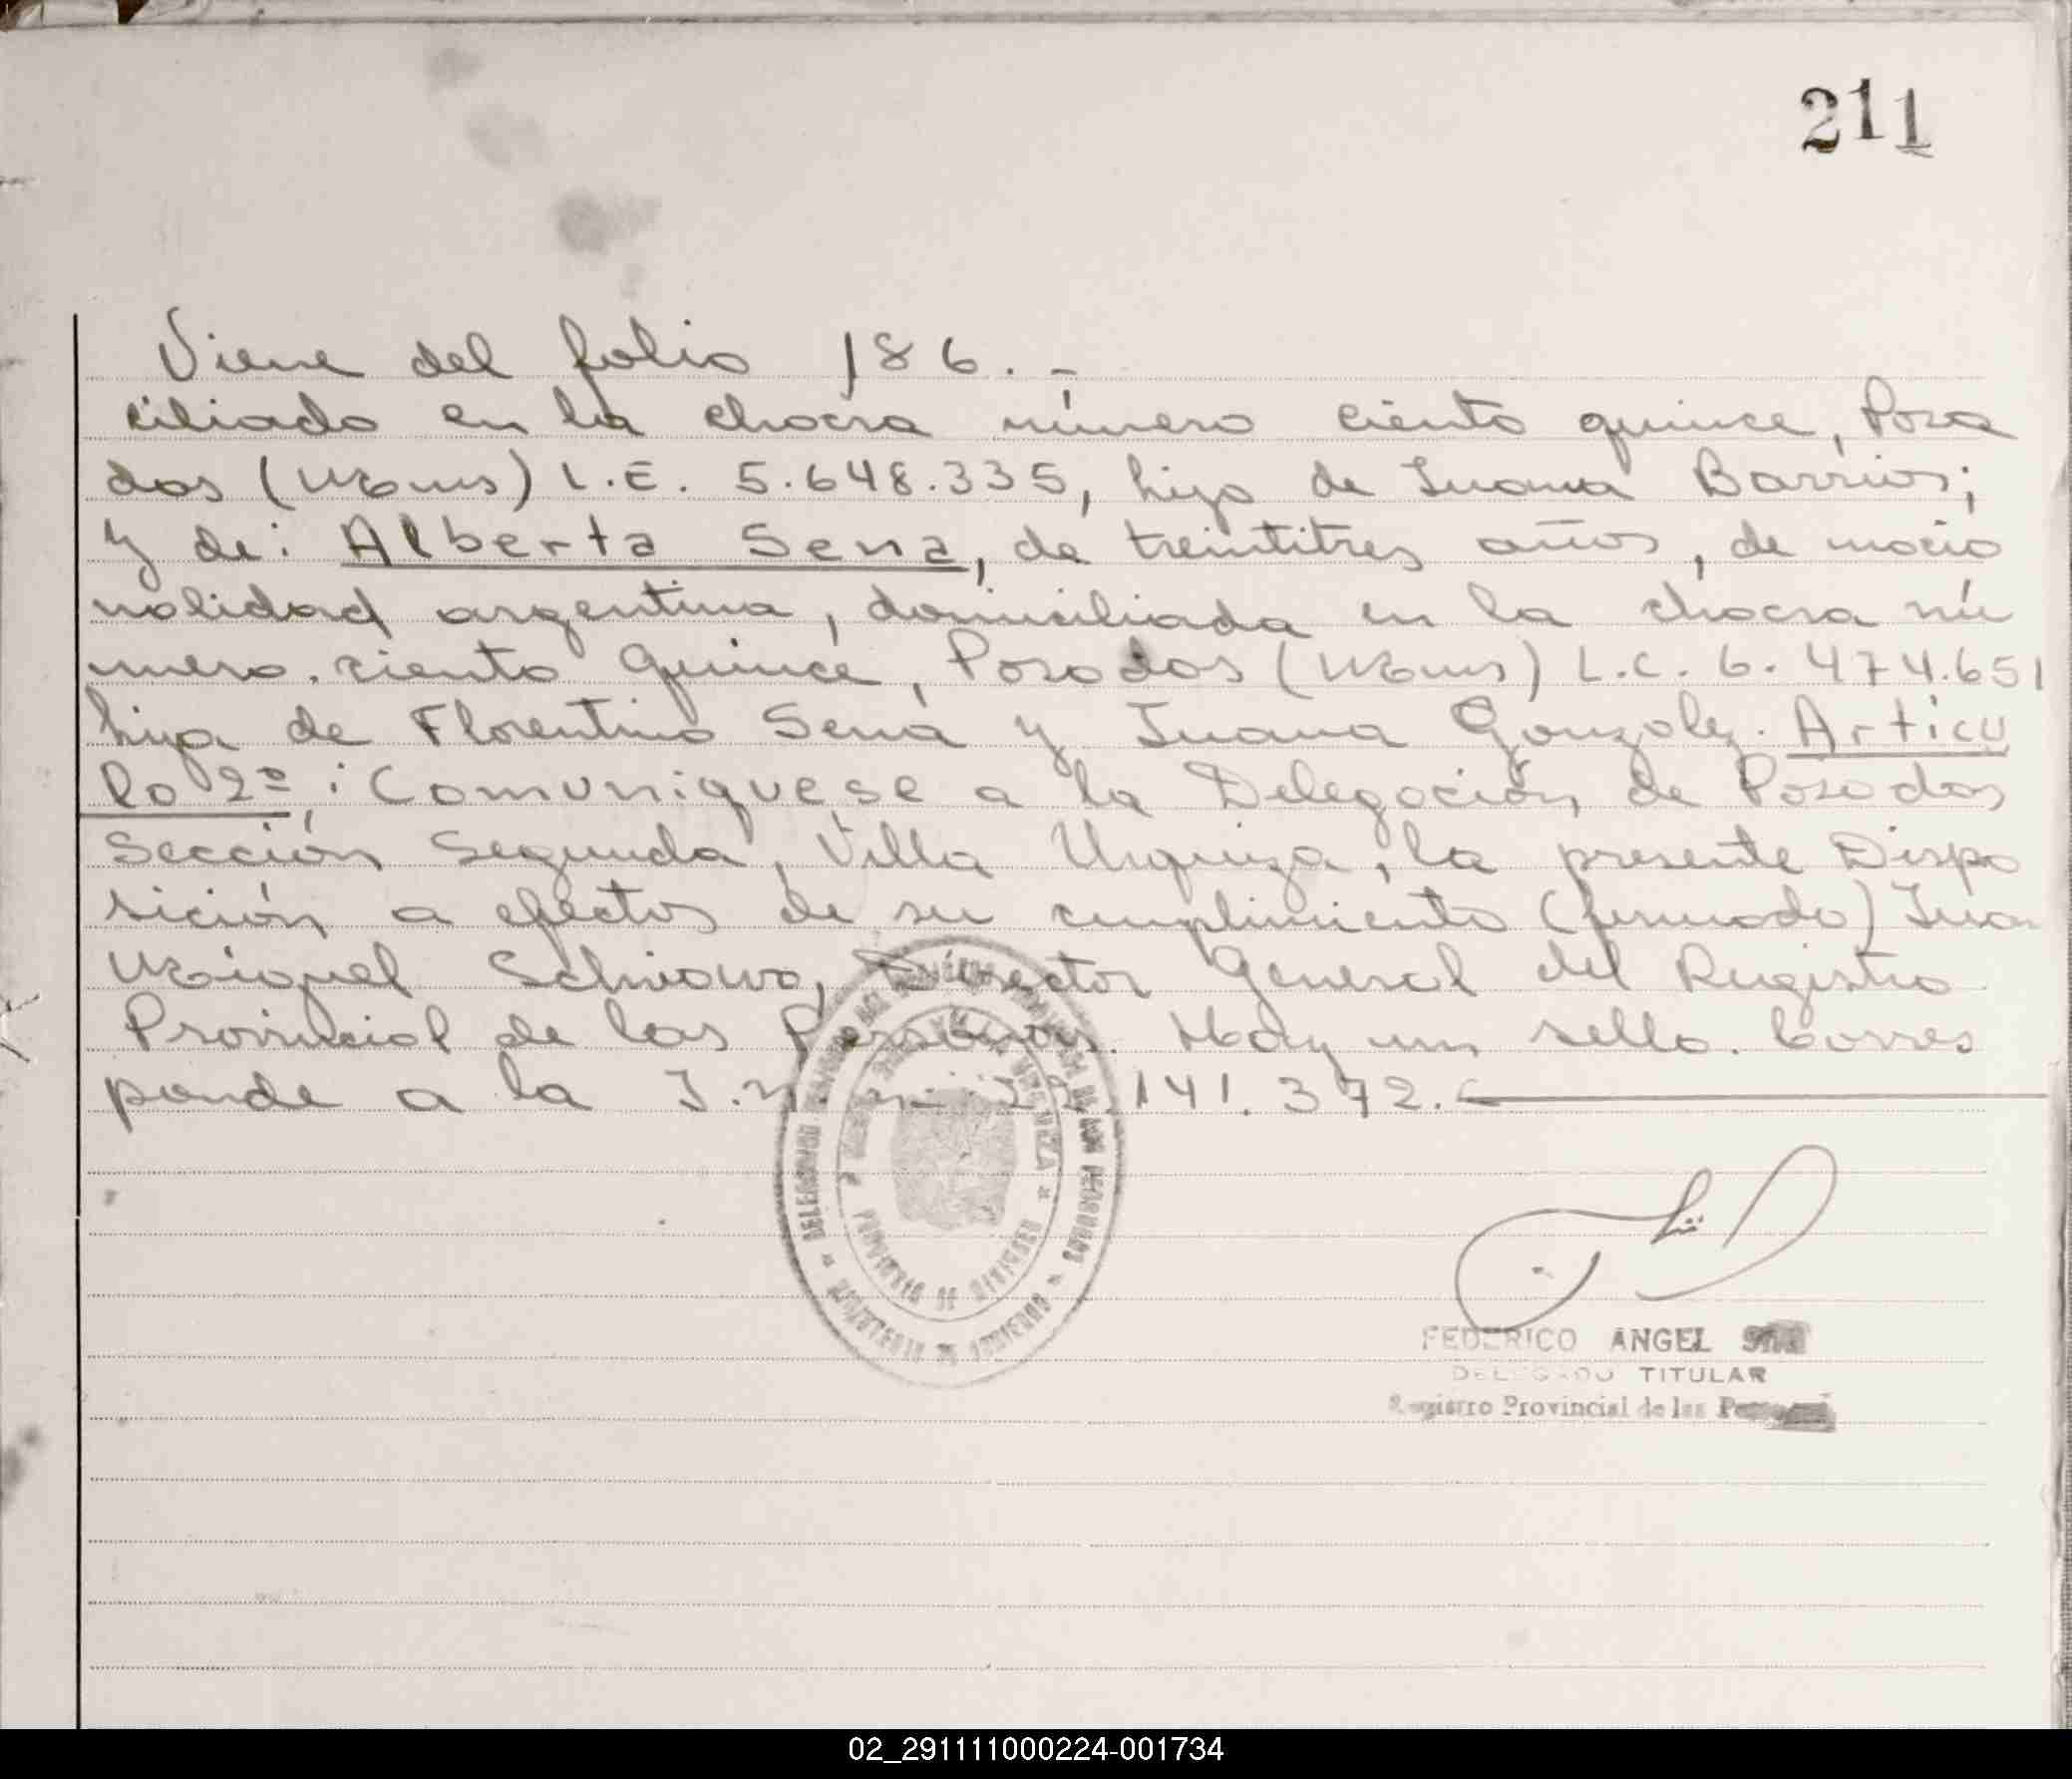 211
Viene del folio 186.-
ciliado en la chacra número ciento quince, Posa
das (Mnes) L.E. 5.648.335, hijo de Juana Barrios;
y de: Alberta Sena, de treintitres años, de nacio
nalidad argentina, domiciliada en la chacra nú
mero ciento quince, Posadas (Mnes) L.C. 6.474.651
hija de Florentino Sena y Juana Gonzalez. Articu
lo 2º: Comuniquese a la Delegación de Posadas
Sección Segunda, Villa Urquiza, la presente Dispo
sición a efectos de su cumplimiento (firmado) Juan
Miguel Schiavo, Director General del Registro
Provincial de las Personas. Hay un sello. Corres
ponde a la I.N. nº 22.141.372.
PROVINCIA DE MISIONES
MINISTERIO DE GOBIERNO
FEDERICO ANGEL
DELEGADO TITULAR
Registro Provincial de las Personas
02_291111000224-001734